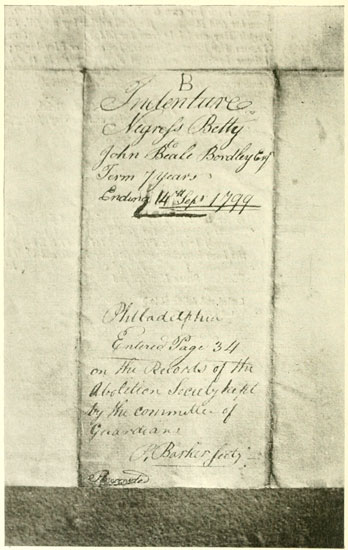 B
Indenture
Negress Betty
to
John Beale Bordley Esqr
Term 7 years
Ending 14th Sepr 1799
Philladelphia
Entered Page 34
on the Records of the
Abolition Society kept
by the committee of
Guardians
Barker Secty